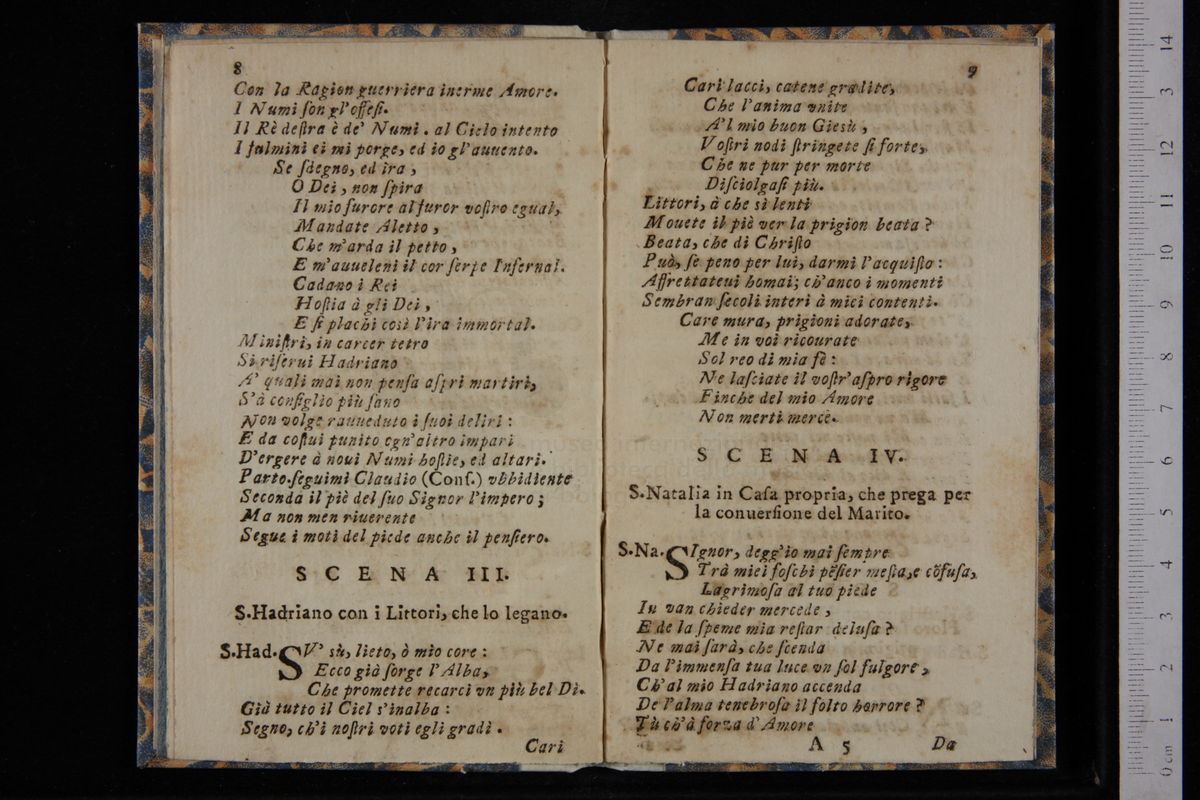 8
Con la Ragion guerriera inerme Amore.
I Numi ſon gl'offeſi.
Il Rè deſtra è de' Numi. al Cielo intento
I fulmini ei mi porge, ed io gl'auuento.
Se ſdegno, ed ira,
O Dei, non ſpira
Il mio furore al furor voſtro egual,
Mandate Aletto,
Che m'arda il petto,
E m'auueleni il cor ſerpe Infernal.
Cadano i Rei
Hoſtia à gli Dei,
E ſi plachi così l'ira immortal.
Miniſtri, in carcer tetro
Si riſerui Hadriano
A' quali mai non penſa aſpri martiri,
S'à conſiglio più ſano
Non volge rauueduto i ſuoi deliri:
E da coſtui punito ogn'altro impari
D'ergere à noui Numi hoſtie, ed altari.
Parto. ſeguimi Claudio (Conſ.) vbbidiente
Seconda il piè del ſuo Signor l'impero;
Ma non men riuerente
Segue i moti del piede anche il penſiero.
SCENA III.
S.Hadriano con i Littori, che lo legano.
S.Had. SV' sù, lieto, ò mio core:
Ecco già ſorge l'Alba,
Che promette recarci vn più bel Dì.
Già tutto il Ciel s'inalba:
Segno, ch'i noſtri voti egli gradì.
Cari
9
Cari lacci, catene gradite,
Che l'anima vnite
A'l mio buon Giesù,
Voſtri nodi ſtringete ſi forte,
Che ne pur per morte
Diſciolgaſi più.
Littori, à che sì lenti
Mouete il piè ver la prigion beata?
Beata, che di Chriſto
Può, ſe peno per lui, darmi l'acquiſto:
Affrettateui homai; ch'anco i momenti
Sembran ſecoli interi à miei contenti.
Care mura, prigioni adorate,
Me in voi ricourate
Sol reo di mia fè:
Ne laſciate il voſtr'aſpro rigore
Finche del mio Amore
Non merti mercè.
SCENA IV.
S.Natalia in Caſa propria, che prega per
la conuerſione del Marito.
S.Na. SIgnor, degg'io mai ſempre
Trà miei foſchi pẽſier meſta, e cõfuſa,
Lagrimoſa al tuo piede
In van chieder mercede,
E de la ſpeme mia reſtar deluſa?
Ne mai ſarà, che ſcenda
Da l'immenſa tua luce vn ſol fulgore,
Ch'al mio Hadriano accenda
De l'alma tenebroſa il folto horrore?
Tù ch'à forza d'Amore
A 5
Da
0 cm 1 2 3 4 5 6 7 8 9 10 11 12 3 14